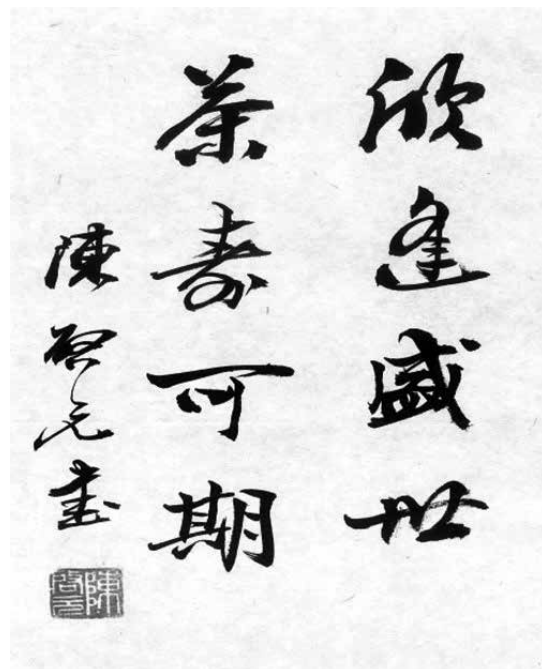 欣逢盛世
茶壽可期
陳啓元書
陳啓元